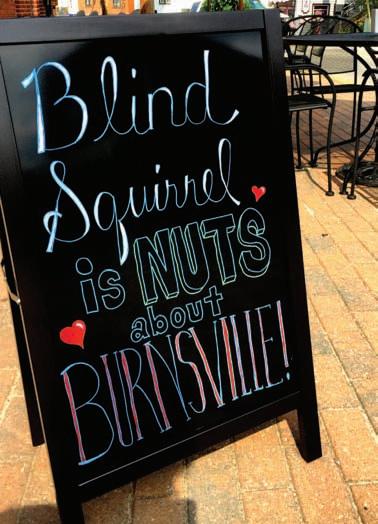 Blind
Squirrel
is NUTS
about
BURNSVILLE!